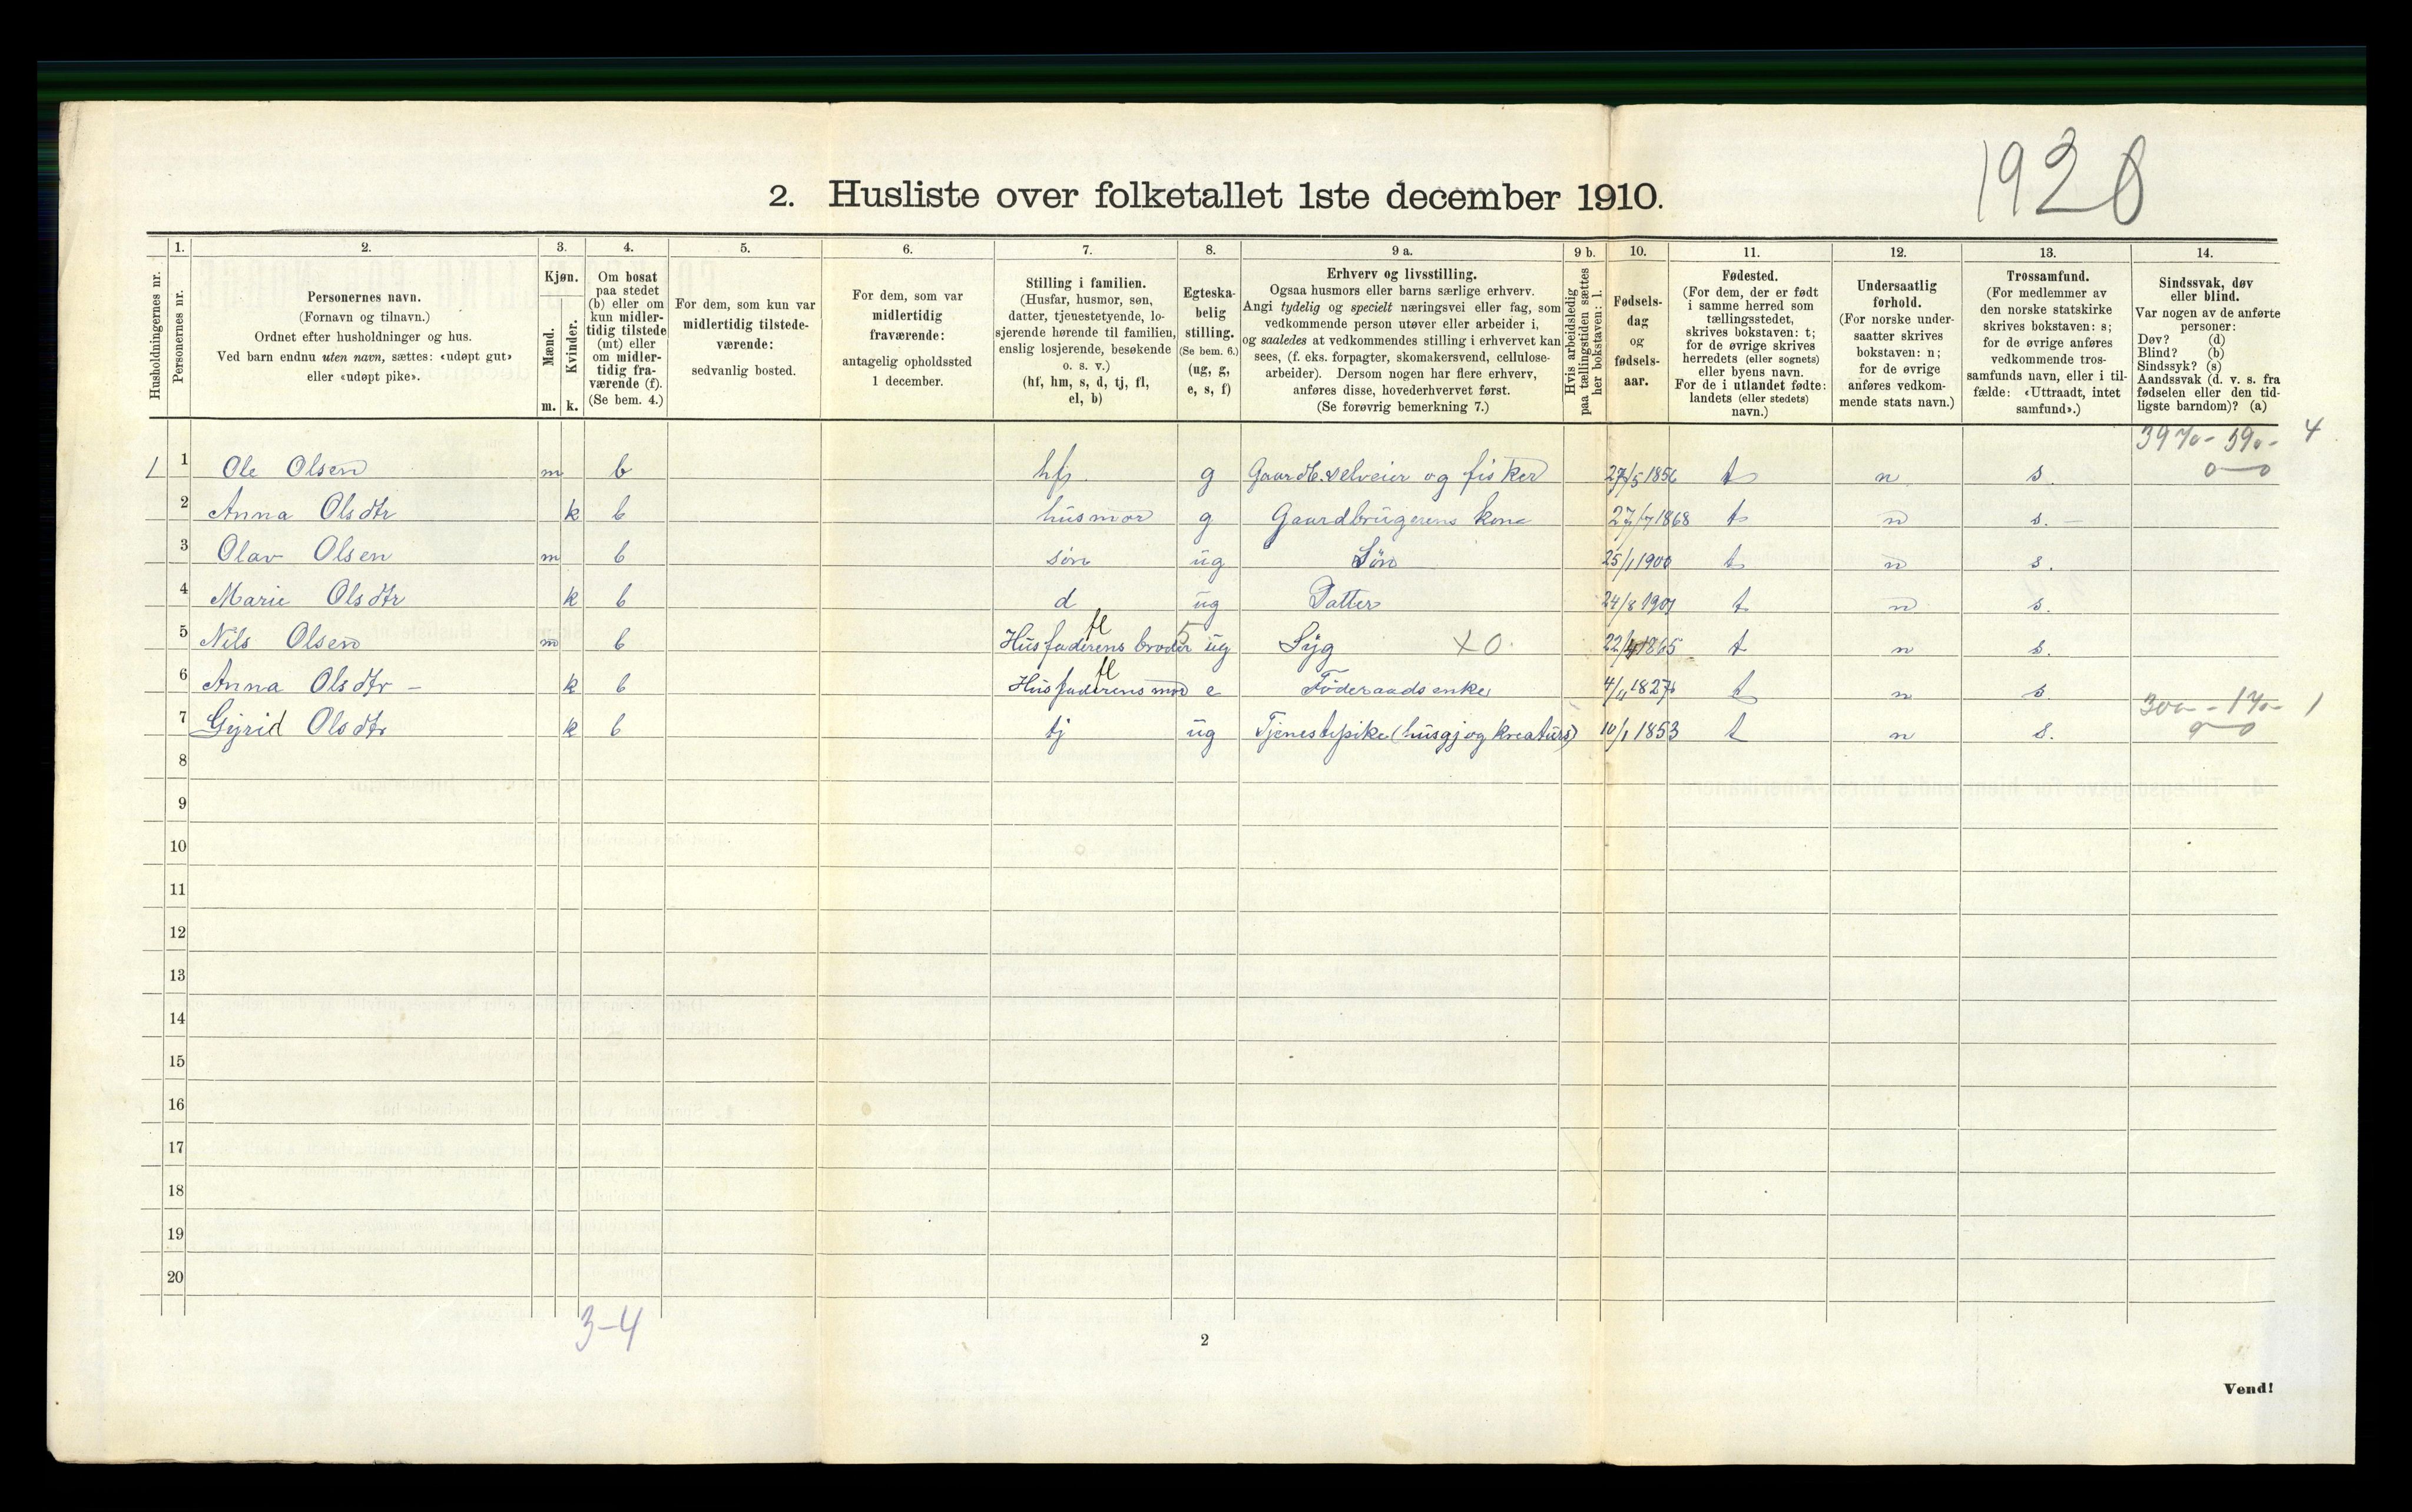 1920
2. Husliste over folketallet 1ste december 1910.
Husholdningernes nr.
1.
Personernes nr.
2.
Personernes navn.
(Fornavn og tilnavn.)
Ordnet efter husholdninger og hus.
Ved barn endnu uten navn, sættes: «udøpt gut»
eller «udøpt pike».
3.
Kjøn.
Mænd.
Kvinder.
m. k.
4.
Om bosat
paa stedet
(b) eller om
kun midler-
tidig tilstede
(mt) eller
om midler-
tidig fra-
værende (f).
(Se bem. 4.)
5.
For dem, som kun var
midlertidig tilstede-
værende:
sedvanlig bosted.
6.
For dem, som var
midlertidig
fraværende:
antagelig opholdssted
1 december.
7.
Stilling i familien.
(Husfar, husmor, søn,
datter, tjenestetyende, lo-
sjerende hørende til familien,
enslig losjerende, besøkende
o. s. v.)
(hf, hm, s, d, tj, fl,
el, b)
8.
Egteska-
belig
stilling.
(Se bem. 6.)
(ug, g,
e, s, f)
9 a.
Erhverv og livsstilling.
Ogsaa husmors eller barns særlige erhverv.
Angi tydelig og specielt næringsvei eller fag, som
vedkommende person utøver eller arbeider i,
og saaledes at vedkommendes stilling i erhvervet kan
sees, (f. eks. forpagter, skomakersvend, cellulose-
arbeider). Dersom nogen har flere erhverv,
anføres disse, hovederhvervet først.
(Se forøvrig bemerkning 7.)
9 b.
Hvis arbeidsledig
paa tællingstiden sættes
her bokstaven: l.
10.
Fødsels-
dag
og
fødsels-
aar.
11.
Fødested.
(For dem, der er født
i samme herred som
tællingsstedet,
skrives bokstaven: t;
for de øvrige skrives
herredets (eller sognets)
eller byens navn.
For de i utlandet fødte:
landets (eller stedets)
navn.)
12.
Undersaatlig
forhold.
(For norske under-
saatter skrives
bokstaven: n;
for de øvrige
anføres vedkom-
mende stats navn.)
13.
Trossamfund.
(For medlemmer av
den norske statskirke
skrives bokstaven: s;
for de øvrige anføres
vedkommende tros-
samfunds navn, eller i til-
fælde: «Uttraadt, intet
samfund».)
14.
Sindssvak, døv
eller blind.
Var nogen av de anførte
personer:
Døv? (d)
Blind? (b)
Sindssyk? (s)
Aandssvak (d. v. s. fra
fødselen eller den tid-
ligste barndom)? (a)
4
1 1 Ole Olsen m b hf g Gaardb. selveier og fisker 27/5 1856 t n s.
2 Anna Olsdtr k b husmor g Gaardbrugerens kone 27/7 1868 t n s. -
3 Olav Olsen m b søn ug Søn 25/1 1900 t n s.
4 Marie Olsdtr k b d ug Datter 24/8 1901 t n s.
fl
5 Nils Olsen m b Husfaderens broder ug Syg X 0. 22/4 1865 t n s.
fl
6 Anna Olsdtr - k b Husfaderens mor e Føderaads enke 4/11 1827 t n s.
300 - 170 - 1
7 Gyrid Olsdtr k b tj ug Tjenestepike (husgj og kreaturs) 10/1 1853 t n s. 0-0
8
9
10
11
12
13
14
15
16
17
18
19
20
3-4
2
Vend!